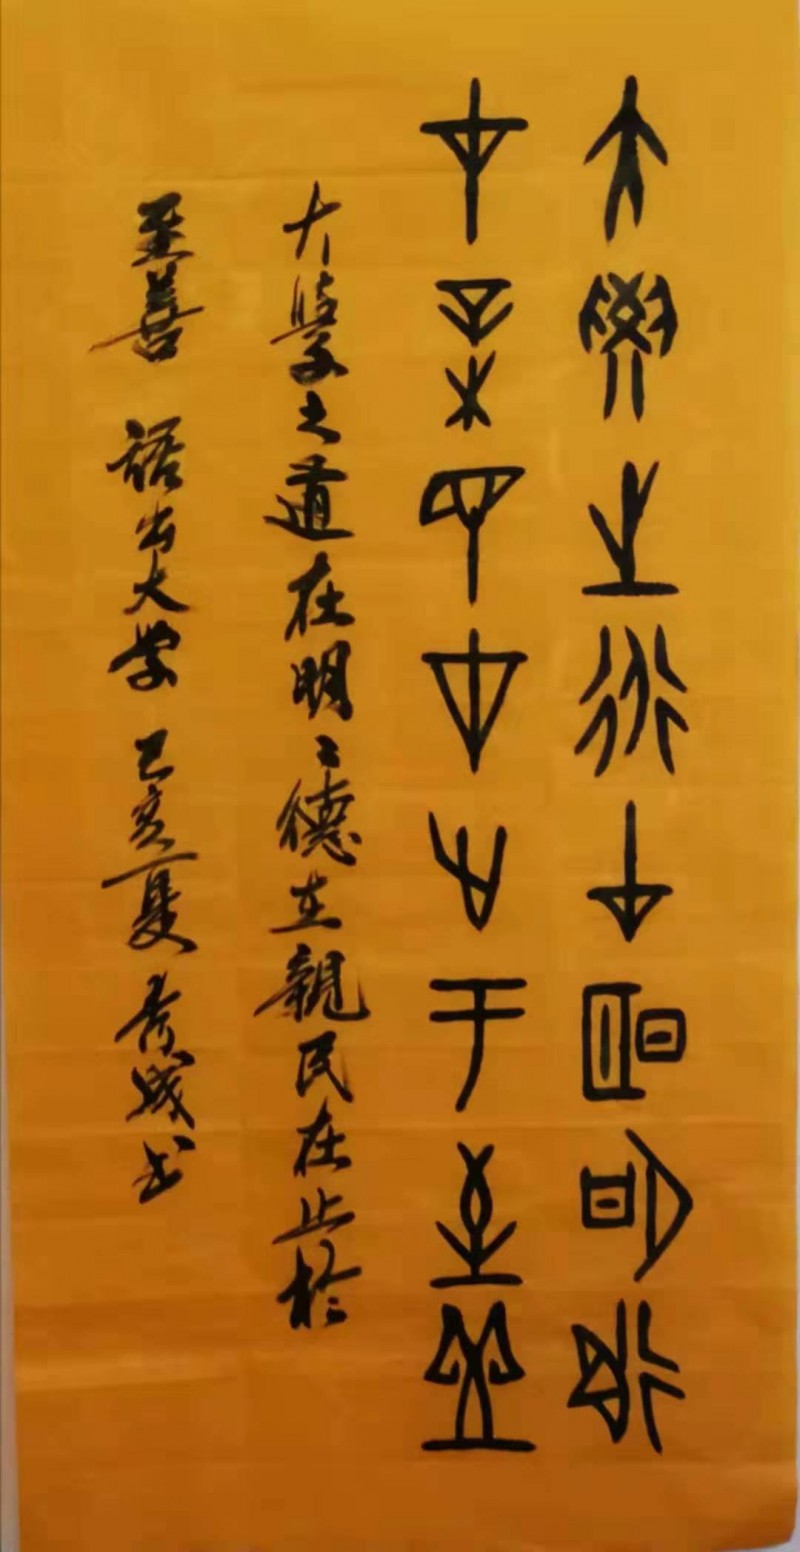 大學之道在明明德
在親民在止于至善
大學之道在明〻德在親民在止於
至善 語出大学 己亥夏 书